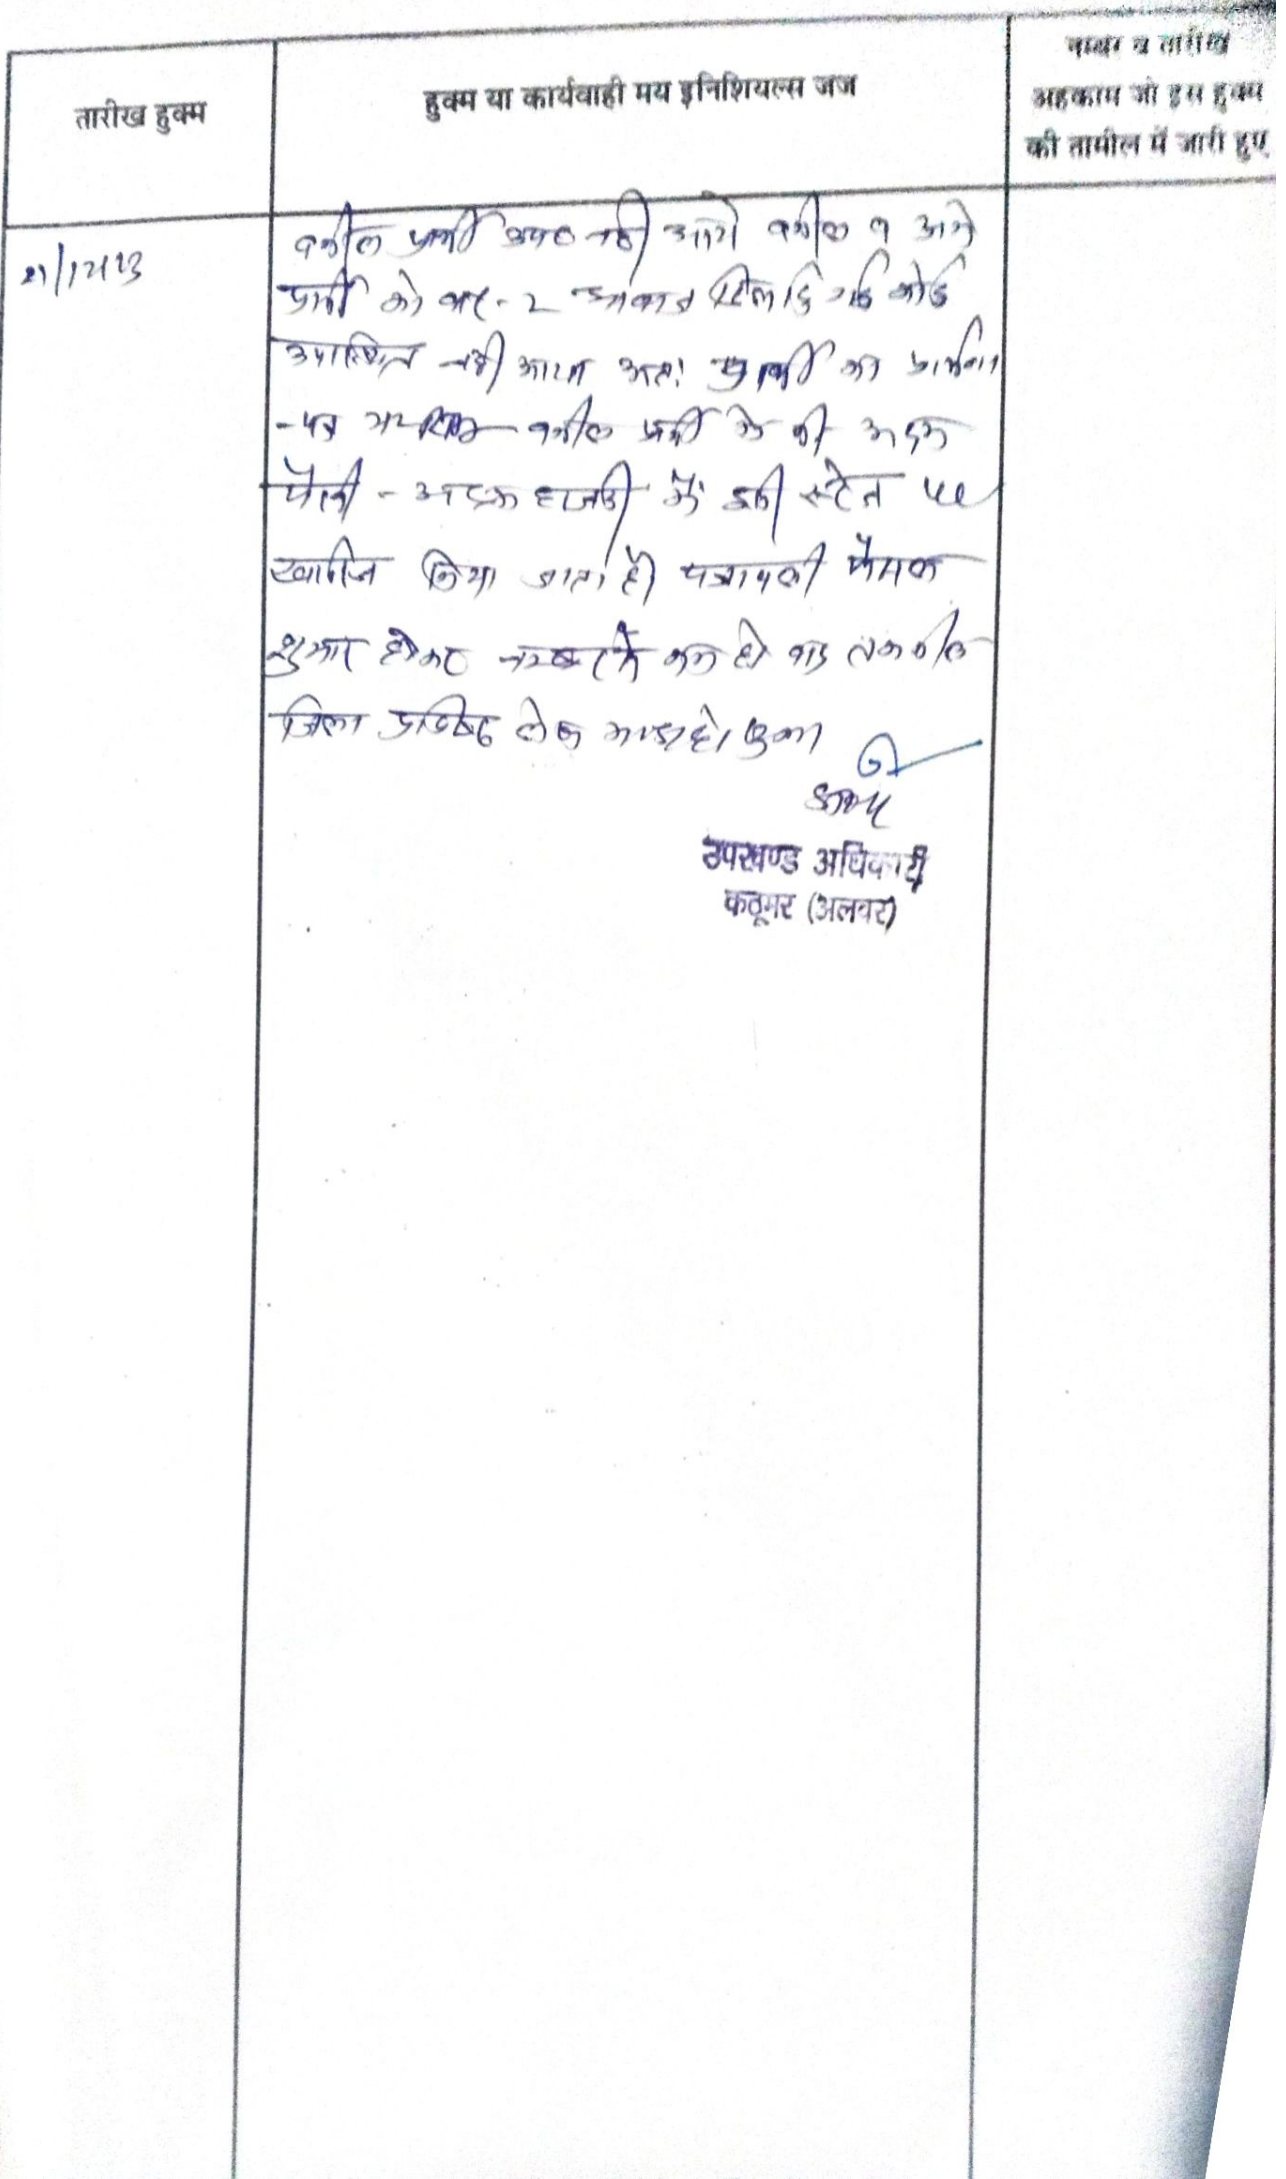 तारीख हुक्म
हुक्म या कार्यवाही मय इनिशियल्स जज
नम्बर व तारीख
अहकाम जो इस हुक्म
की तामील में जारी हुए
वकील प्रार्थी उप० नहीं आये वकील व
प्रार्थी को बार-2 आवाज दिलाई गई कोई
उपस्थित नहीं आया अतः प्रार्थी का प्रार्थना
-पत्र वकील प्रार्थी की अदम
पैरवी - अदम हाजरी में इसी स्टेज पर
खारीज किया जाता है। पत्रावली फैसल
शुमार होकर नम्बर से कम हो बाद तकमील
जिला
उपखण्ड अधिकारी
कठूमर (अलवर)